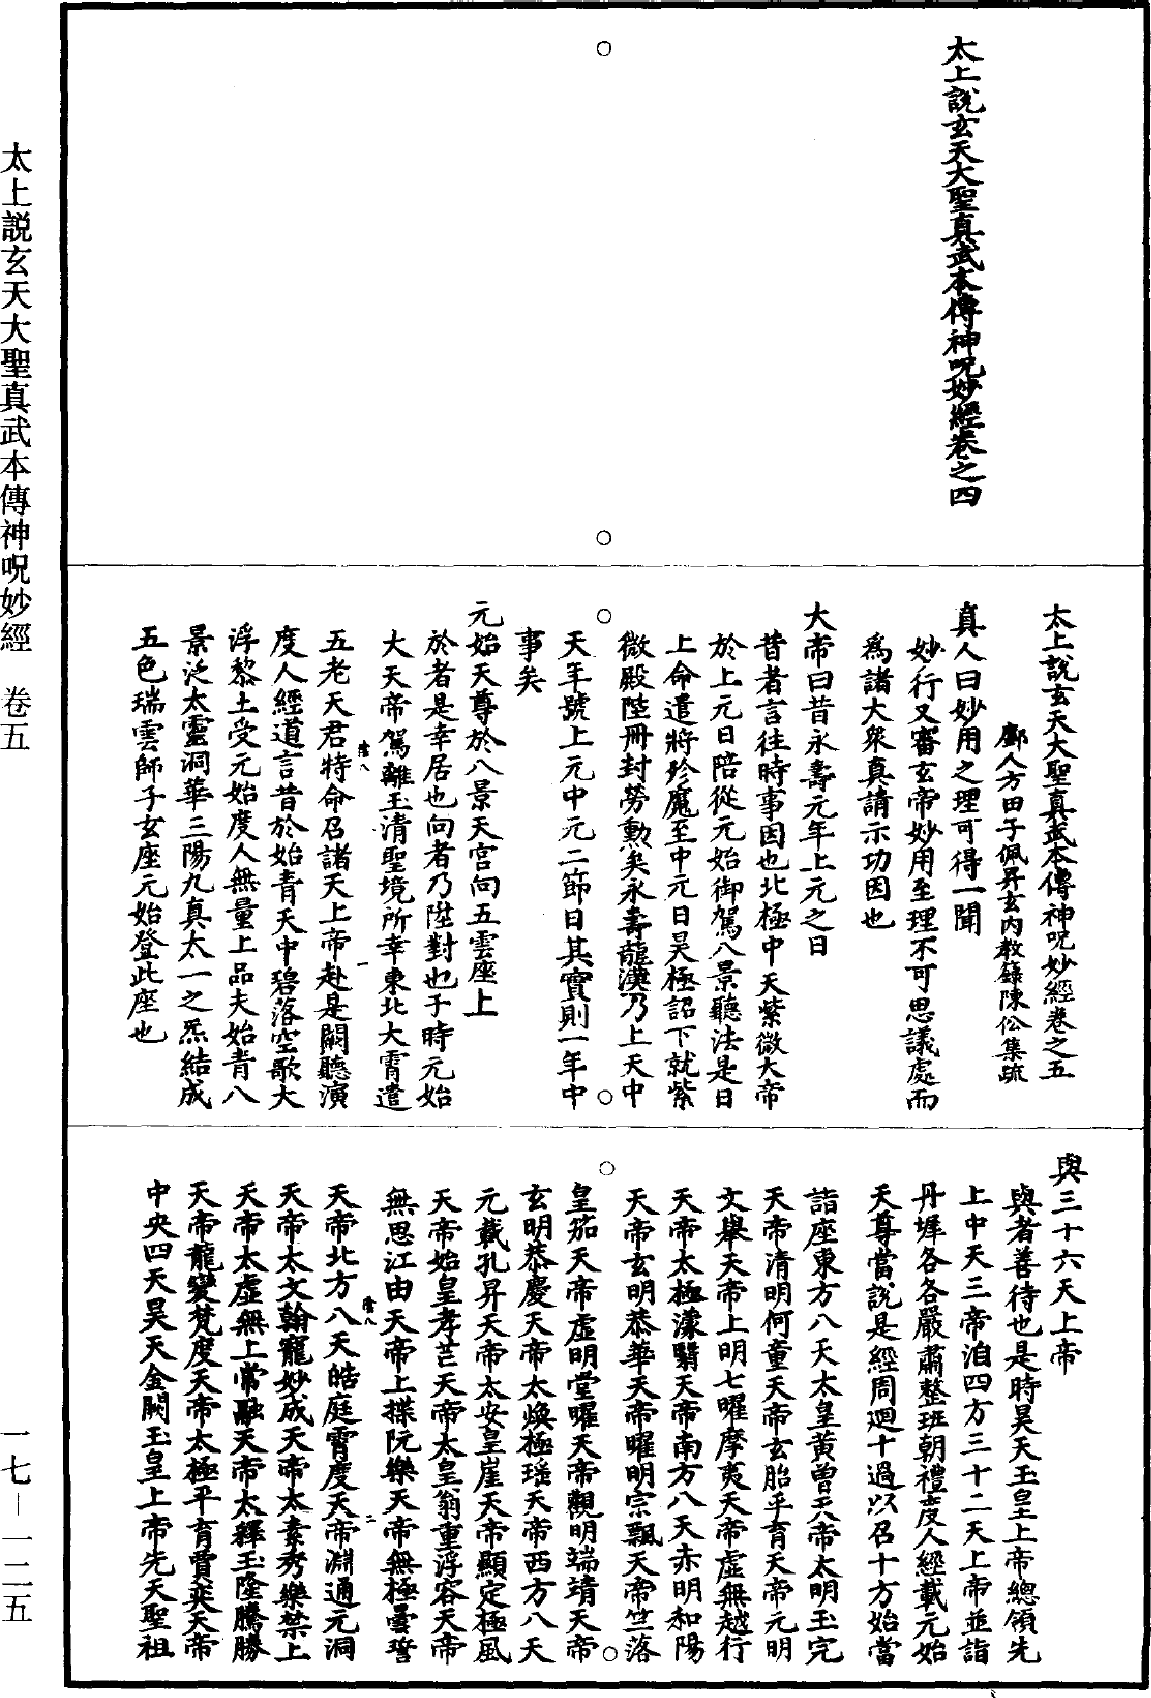 太上説玄天大聖真武本傳神呪妙經 卷五
一七—一二五
太上說玄天大聖真武本傳神呪妙經卷之四
太上說玄天大聖真武本傳神呪妙經卷之五
鄽人方田子佩昇玄內教籙陳伀集疏
真人曰妙用之理可得一聞
妙行又審玄帝妙用至理不可思議處而
為諸大衆真請示功因也
大帝曰昔永壽元年上元之日
昔者言往時事因也北極中天紫微大帝
於上元日陪從元始御駕八景聽法是日
上命遣將殄魔至中元日昊極詔下就紫
微殿陛冊封勞勳矣永壽龍漢乃上天中
天年號上元中元二節日其實則一年中
事矣
元始天尊於八景天宮向五雲座上
於者是幸居也向者乃陛對也于時元始
大天帝駕離玉清聖境所幸東北大霄遣
五老天君特命召諸天上帝赴是闕聽演
度人經道言昔於始青天中碧落空歌大
浮黎土受元始度人無量上品夫始青八
景泛太靈洞華三陽九真太一之炁結成
五色瑞雲師子玄座元始登此座也
與三十六天上帝
與者善待也是時昊天玉皇上帝總領先
上中天三帝洎四方三十二天上帝並詣
丹墀各各嚴肅整班朝禮度人經載元始
天尊當說是經周迴十過以召十方始當
詣座東方八天太皇黃曾天帝太明玉完
天帝清明何童天帝玄胎平育天帝元明
文舉天帝上明七曜摩夷天帝虛無越衡
天帝太極濛翳天帝南方八天赤明和陽
天帝玄明恭華天帝曜明宗飄天帝竺落
皇笳天帝虛明堂曜天帝觀明端靖天帝
玄明恭慶天帝太煥極瑤天帝西方八天
元載孔昇天帝太安皇崖天帝顯定極風
天帝始皇孝芒天帝太皇翁重浮容天帝
無思江由天帝上揲阮樂天帝無極曇誓
天帝北方八天皓庭霄度天帝淵通元洞
天帝太文翰寵妙成天帝太素秀樂禁上
天帝太虛無上常融天帝太釋玉隆騰勝
天帝龍變梵度天帝太極平育賈奕天帝
中央四天昊天金闕玉皇上帝先天聖祖